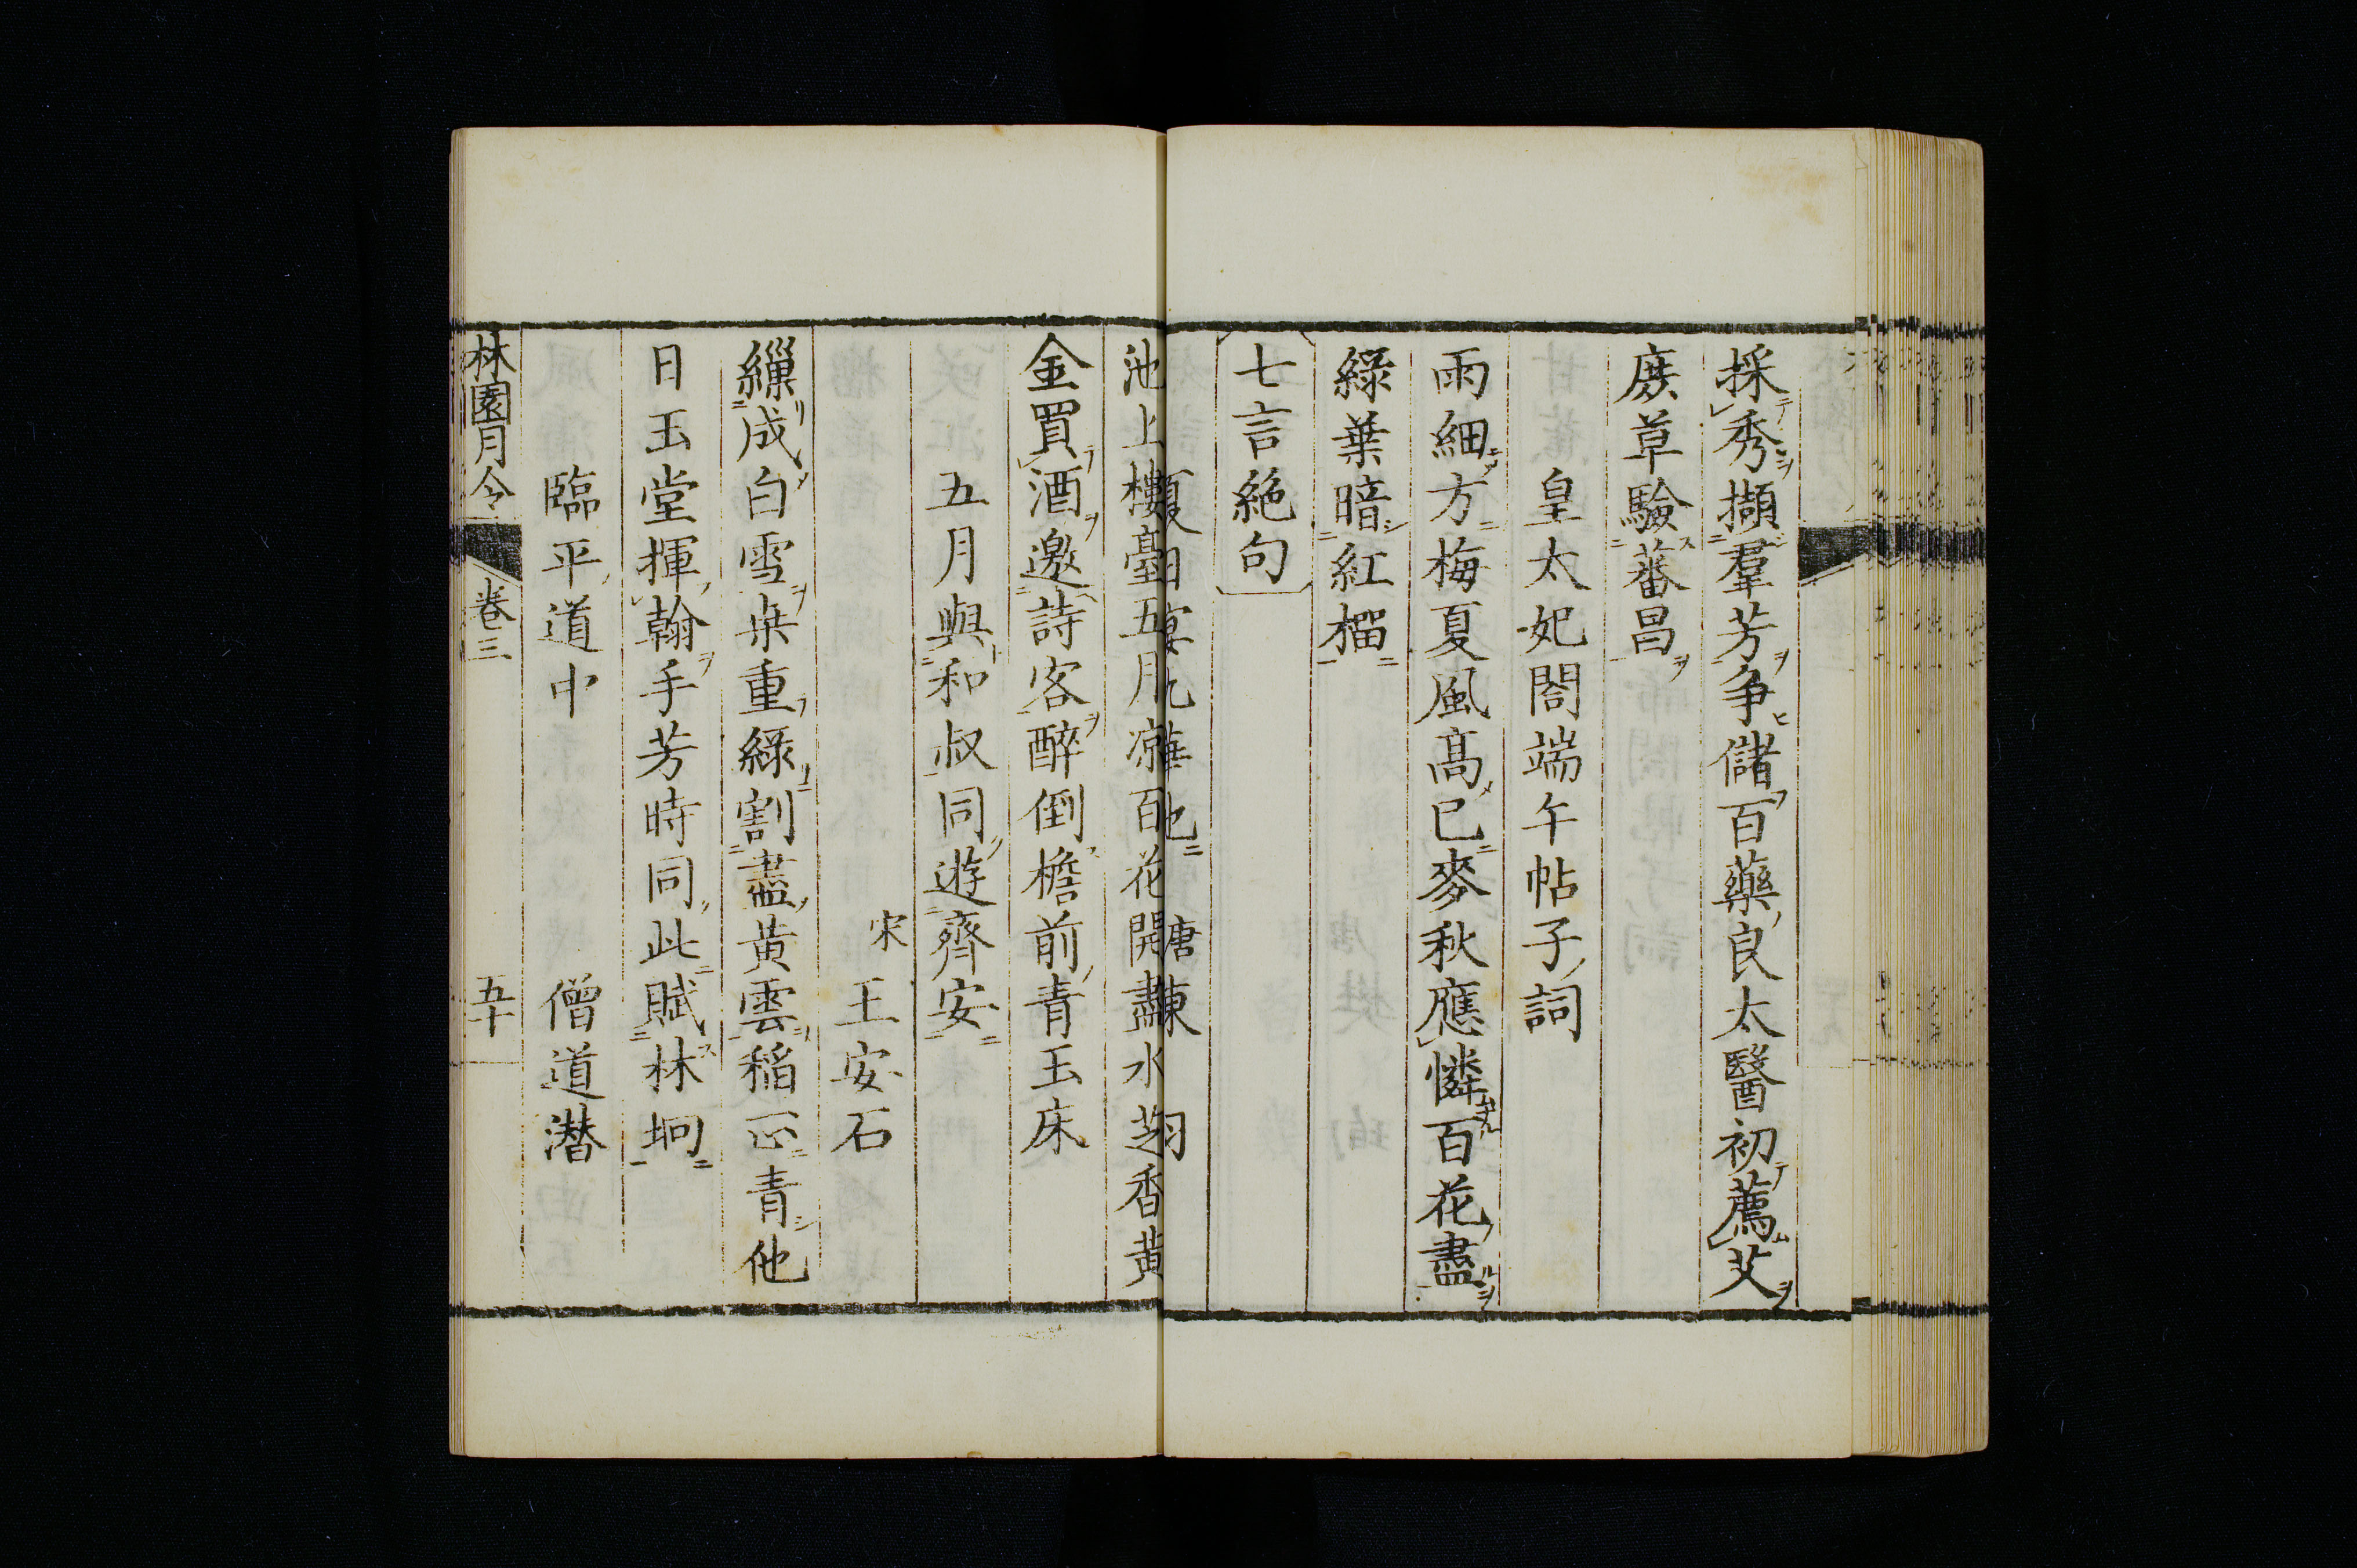 採秀擷羣芳爭儲百藥良太醫初薦艾
庶草驗蕃昌
皇太妃閤端午帖子詞
雨細方梅夏風高已麥秋應憐百花盡
綠葉暗紅榴
七言絕句
夏日宴九華池 唐陳羽
池上樓臺五月凉百花開盡水芝香黃
金買酒邀詩客醉倒檐前青玉床
五月與和叔同遊齊安
宋王安石
繅成白雪桒重綠割盡黃雲稻正青他
日玉堂揮翰手芳時同此賦林坰
臨平道中 僧道潜
林園月令 卷三 五十